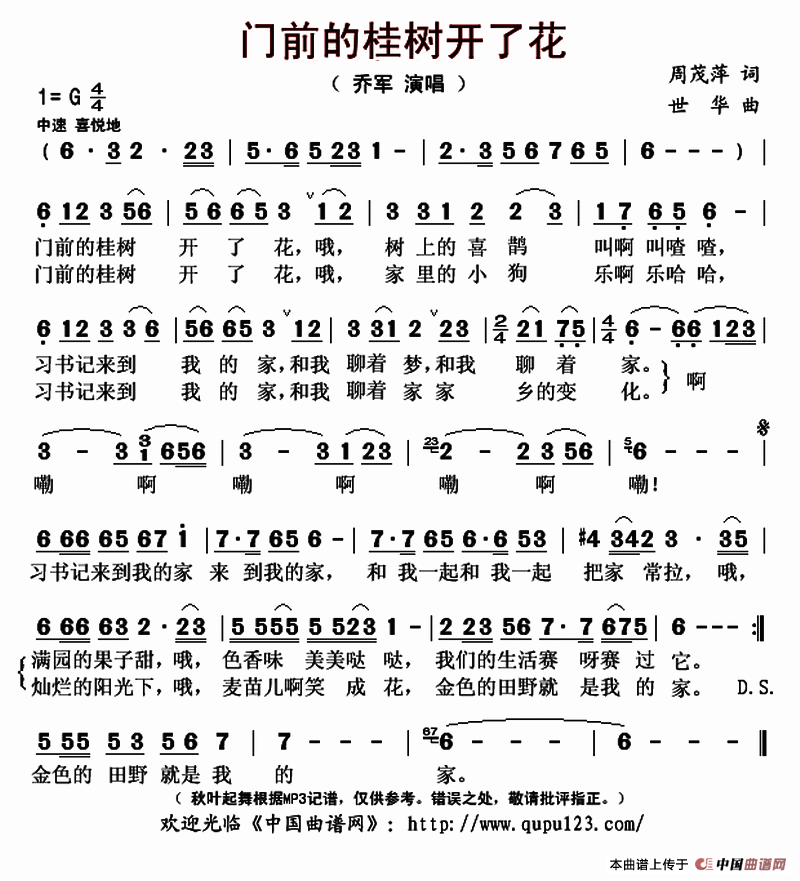 门前的桂树开了花
（ 乔军 演唱 ）
周茂萍 词
世 华 曲
1= G 4/4
中速 喜悦地
( 6 · 3 2 · 23 | 5 · 6 5 23 1 - | 2 · 3 5 6 7 6 5 | 6 - - - ) |
6 12 3 56 | 5 6 6 5 3 ∨ 1 2 | 3 3 1 2 2 3 | 1 7 6 5 6 - |
门前的桂树 开 了 花，哦， 树 上的 喜 鹊 叫啊 叫喳 喳，
门前的桂树 开 了 花，哦， 家 里的 小 狗 乐啊 乐哈 哈，
6 12 3 3 6 | 56 65 3 ∨ 12 | 3 31 2 ∨ 23 | 2/4 21 75 | 4/4 6 - 66 123 |
习书记来到 我 的 家，和我 聊着 梦，和我 聊 着 家。
习书记来到 我 的 家，和我 聊着 家 家 乡的变 化。 啊
3 - 3 3 1 656 | 3 - 3 1 23 | 23 2 - 2 3 56 | 5 6 - - - |
嘞 啊 嘞 啊 嘞 啊 嘞！
6 66 65 67 1 | 7 · 7 65 6 - | 7 · 7 65 6 · 6 53 | #4 342 3 · 35 |
习书记来到我的家 来 到我的家， 和 我一起和 我一起 把家 常拉，哦，
6 66 63 2 · 23 | 5 555 5 523 1 - | 2 23 56 7 · 7 675 | 6 - - :||
满园的果子甜，哦， 色香味 美美哒 哒， 我们的生活赛 呀赛 过 它。
灿烂的阳光下，哦， 麦苗儿啊笑 成 花， 金色的田野就 是我 的 家。 D.S.
5 55 53 56 7 | 7 - - - | 67 6 - - - | 6 - - - ||
金色的 田野 就是 我 的 家。
（ 秋叶起舞根据MP3记谱，仅供参考。错误之处，敬请批评指正。）
欢迎光临《中国曲谱网》：http://www.qupu123.com/
本曲谱上传于 中国曲谱网